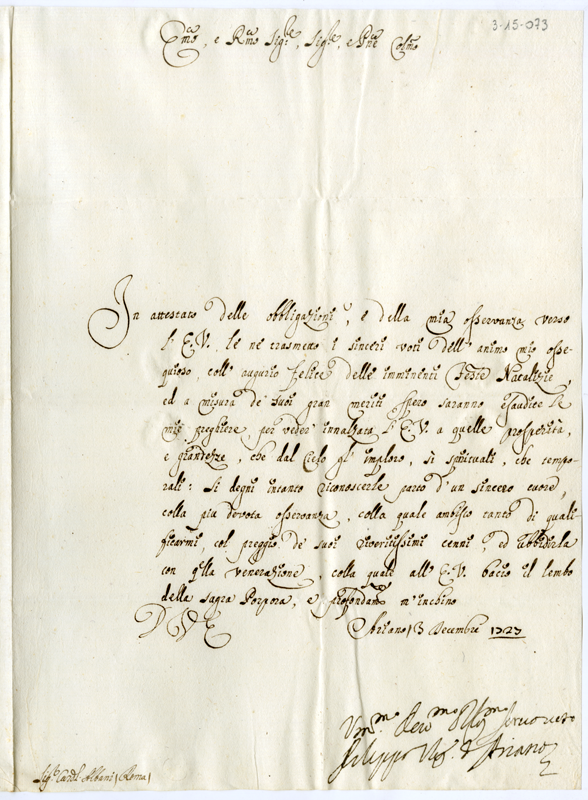 3-15-073
Em̃o, e Rm̃o Sig.re, Sig.re, e Pñe Colm̃o
In attestato delle obbligazioni, e della mia osservanza verso
l'E.V. le ne trasmetto i sinceri voti dell'animo mio osse-
quioso, coll'augurio felice delle imminenti Feste Natalizie,
ed a misura de suoi gran meriti spero saranno esaudite le
mie preghiere, per veder innalzata l'E.V. a quelle prosperità,
e grandezze, che dal Cielo gl'imploro, sì spirituali, che tempo-
rali: Si degni intanto riconoscerle parto d'un sincero cuore,
colla più divota osservanza, colla quale ambisco tanto di quali-
ficarmi, col preggio de suoi riveritissimi cenni, ed ubbidirla
con q.lla venerazione, colla quale all'E.V. bacio il lembo
della sagra Porpora, e profondam.te m'inchino
D V E
Ariano 13 Decembre 1727
Um.mo Dev.mo Obb.mo Servo vero
Filippo Ves.o d'Ariano
Sig.r Card.l Albani (Roma)